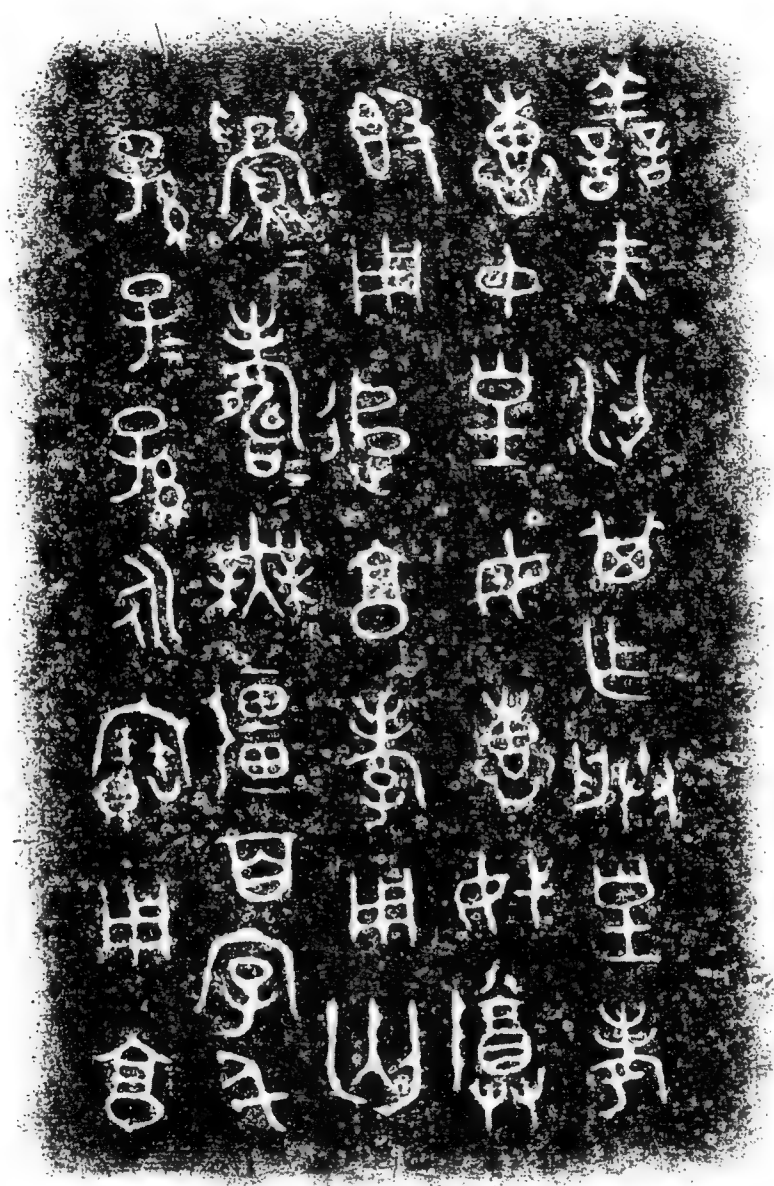 善夫梁其乍朕皇考
惠中皇母惠妣尊
簋用追享孝用匄
眉=壽=無疆百字千
孫子=孫=永寶用享